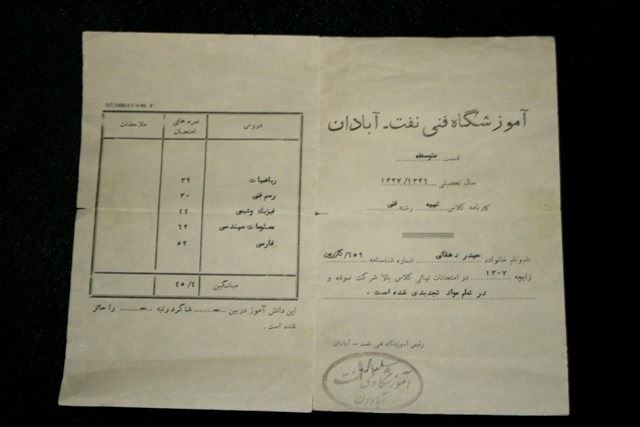 آموزشگاه فنی نفت - آبادان
قسمت متوسطه
سال تحصیلی ۱۳۲۷/۱۳۲۶
کارنامه کلاس تهیه رشته فنی
نام و نام خانواده حیدر دهقانی شماره شناسنامه ۶۵۹/کازرون
زاییچه ۱۳۰۷ در امتحانات نهائی کلاس بالا شرکت نموده و
در تمام مواد تجدیدی شده است.
رئیس آموزشگاه فنی نفت - آبادان
آموزشگاه فنی نفت
آبادان
دروس نمره های امتحان ملاحظات
ریاضیات ۳۲
رسم فنی ۳۰
فیزیک وشیمی ۴۴
معلومات مهندسی ۶۲
فارسی ۵۴
میانگین ۴۵/۴
این دانش آموز در بین شاگرد رتبه را حائز
شده است.